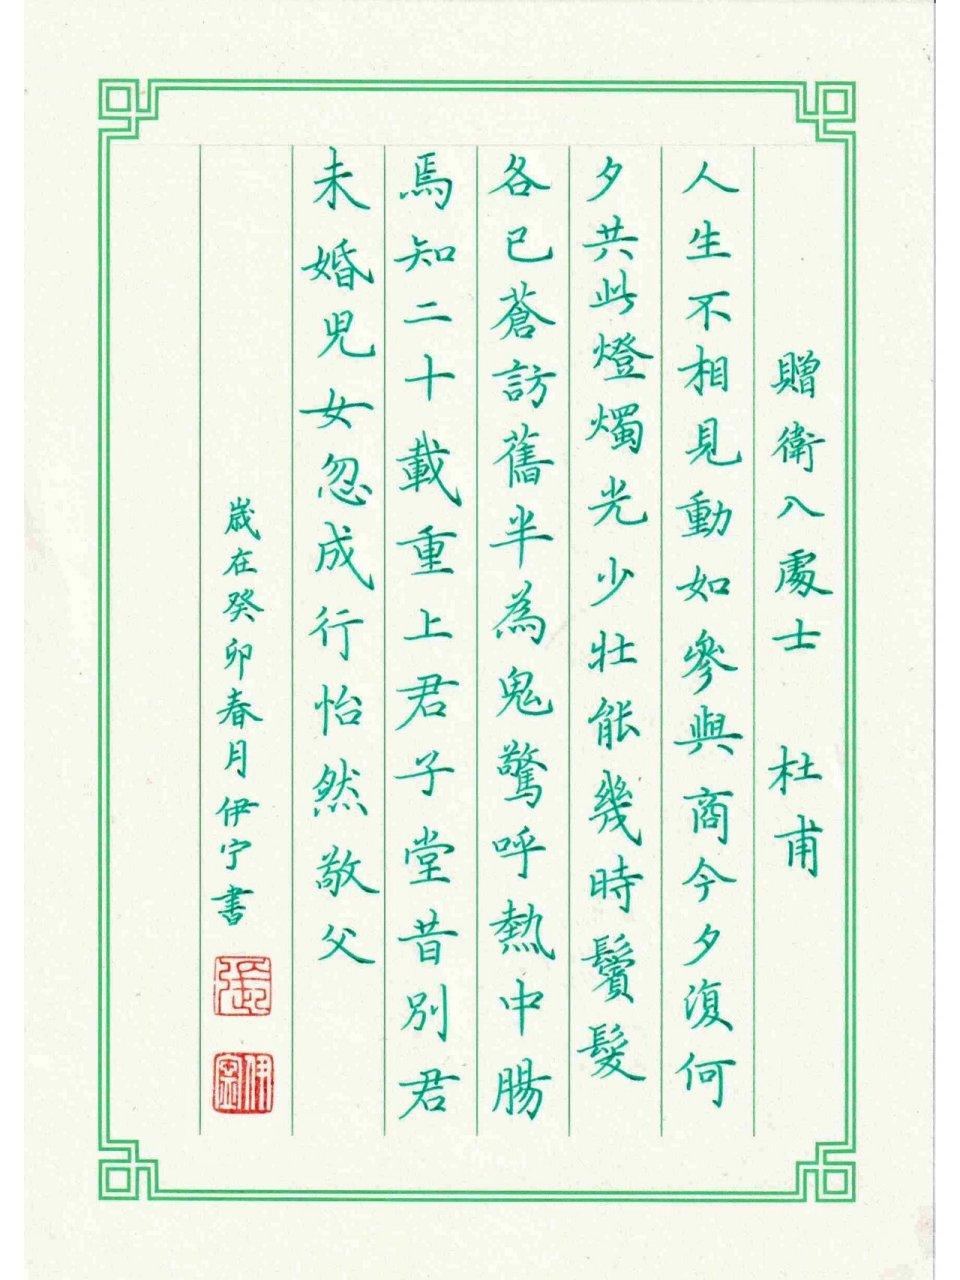 贈衛八處士 杜甫
人生不相見動如參與商今夕復何
夕共此燈燭光少壯能幾時鬢髮
各已蒼訪舊半為鬼驚呼熱中腸
焉知二十載重上君子堂昔別君
未婚兒女忽成行怡然敬父
歲在癸卯春月伊宁書
張
伊寧